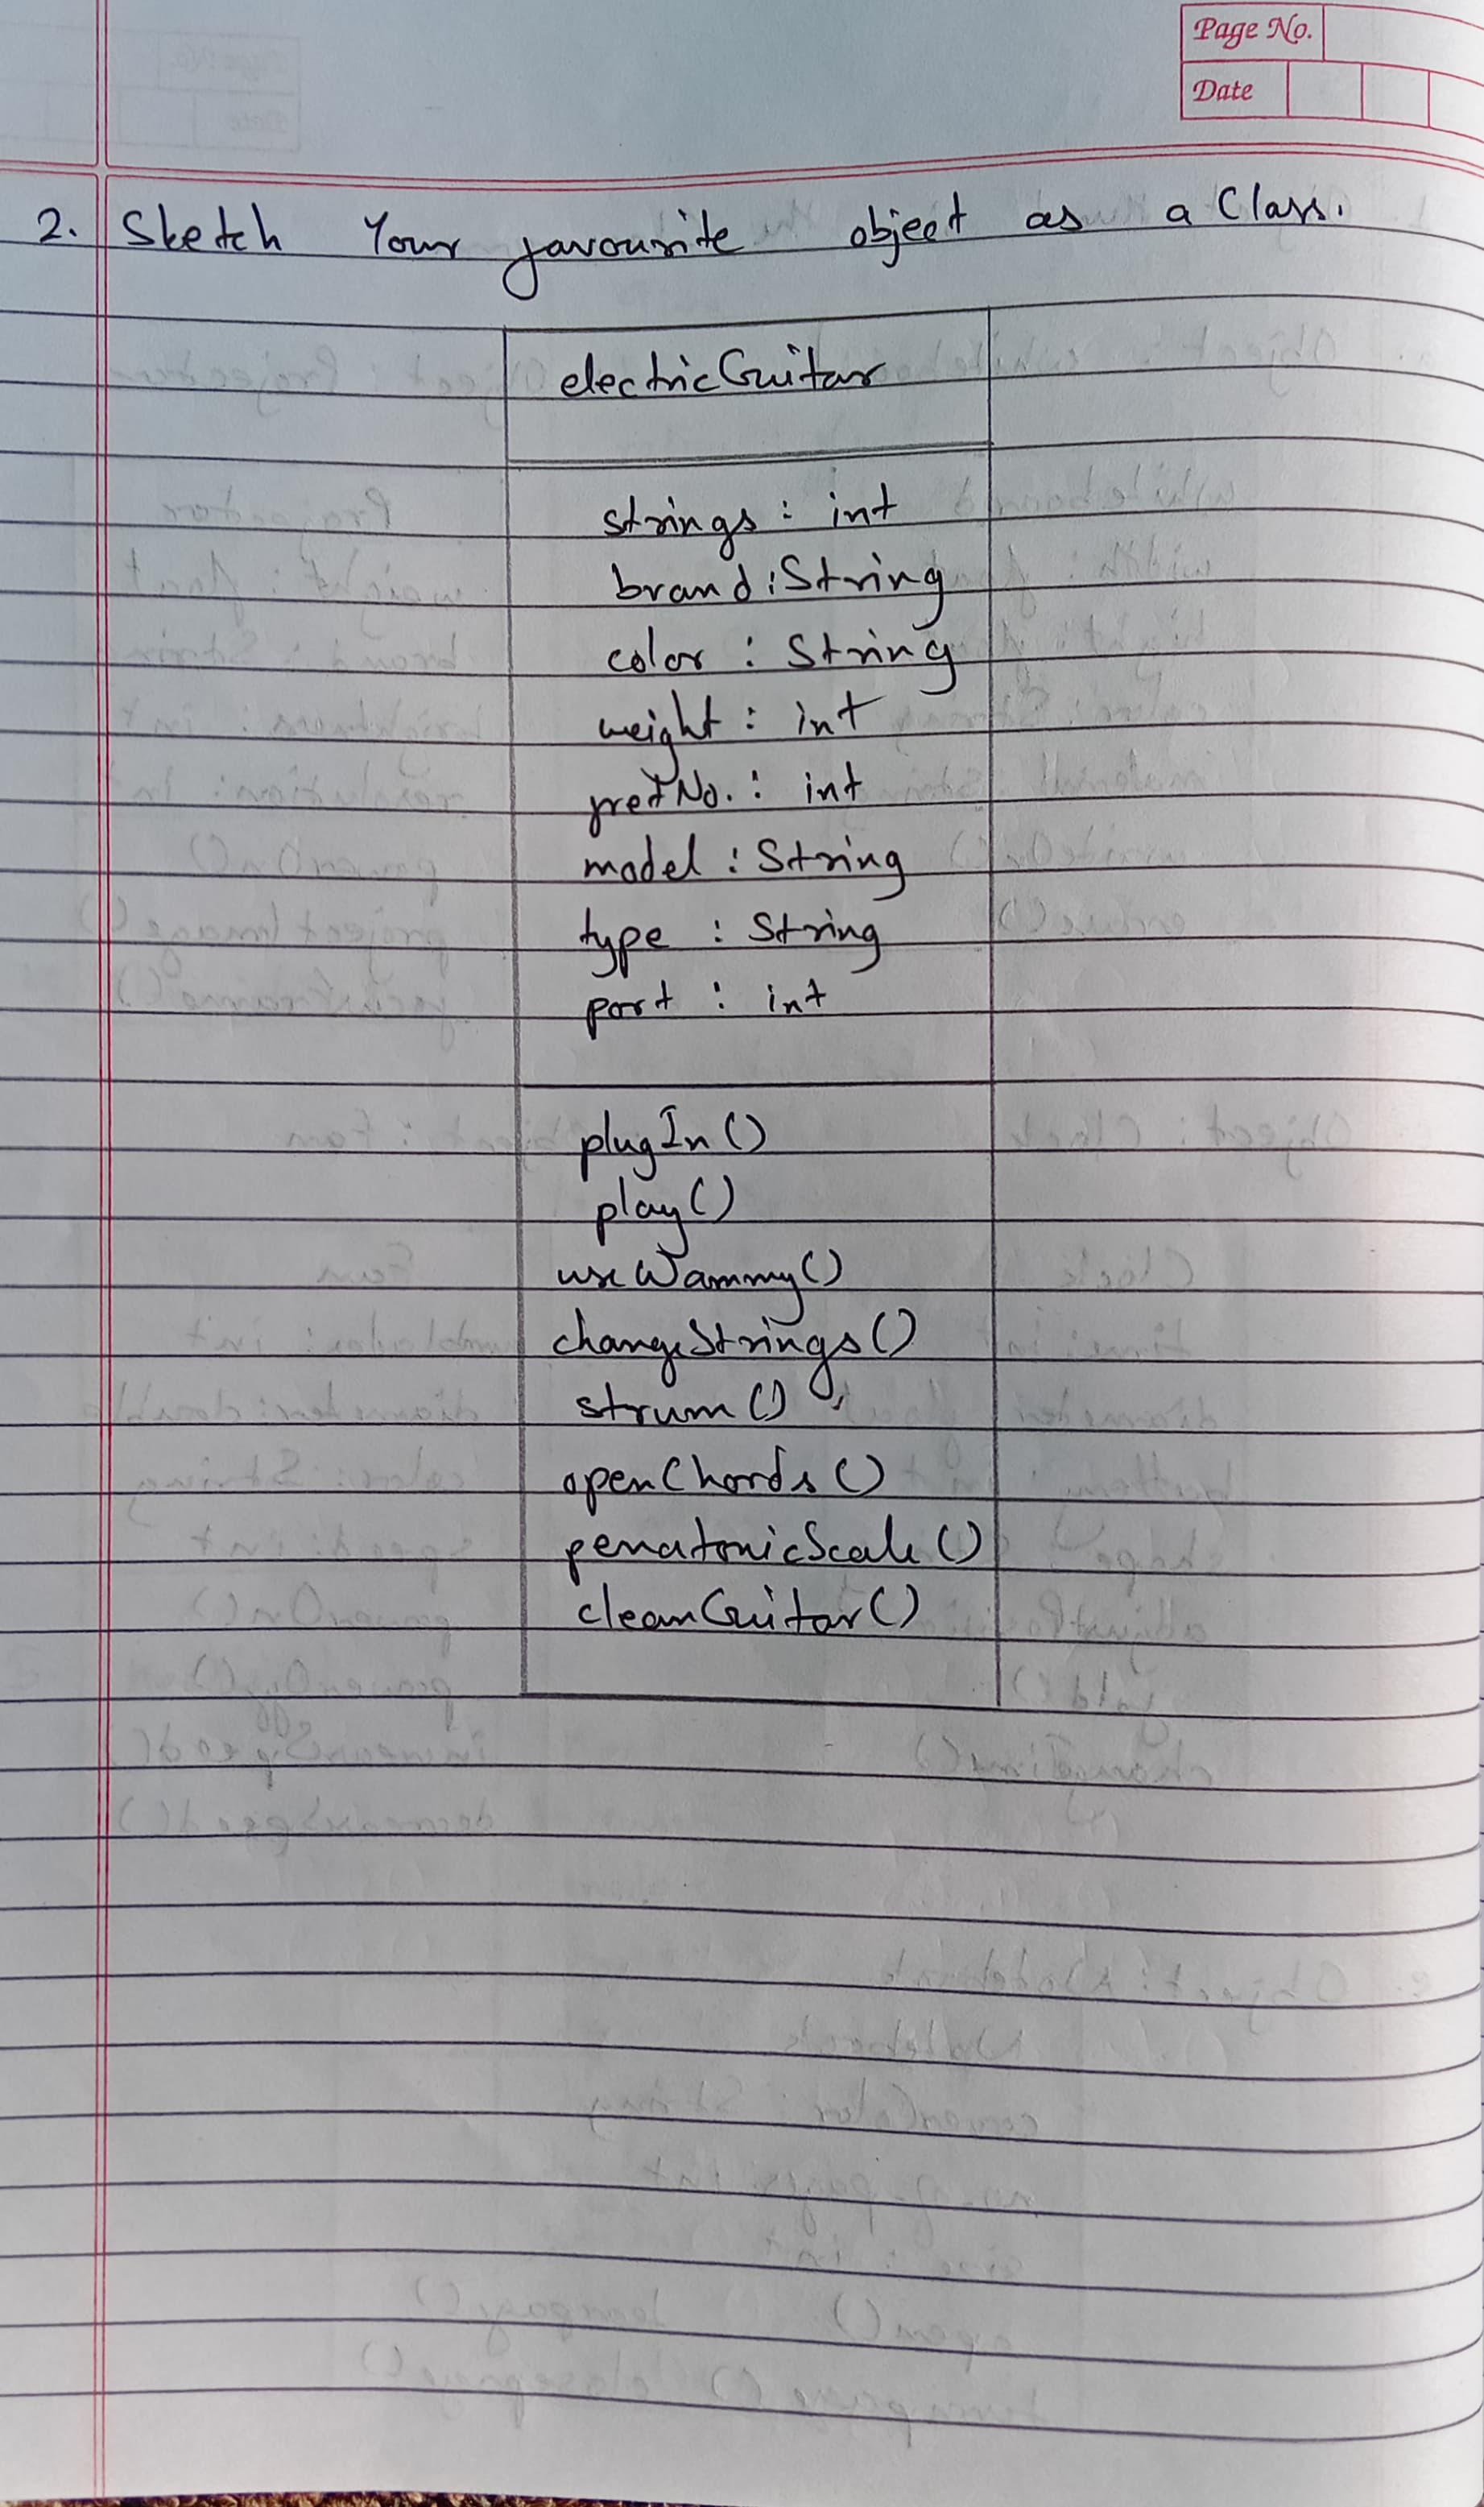 Page No.
Date
2. Sketch Your favourite object as a Class.
electricGuitar
strings : int
brand : String
color : String
weight : int
fretNo. : int
model : String
type : String
port : int
plugIn()
play()
useWammy()
changeStrings()
strum()
openChords()
penatonicScale()
cleanGuitar()